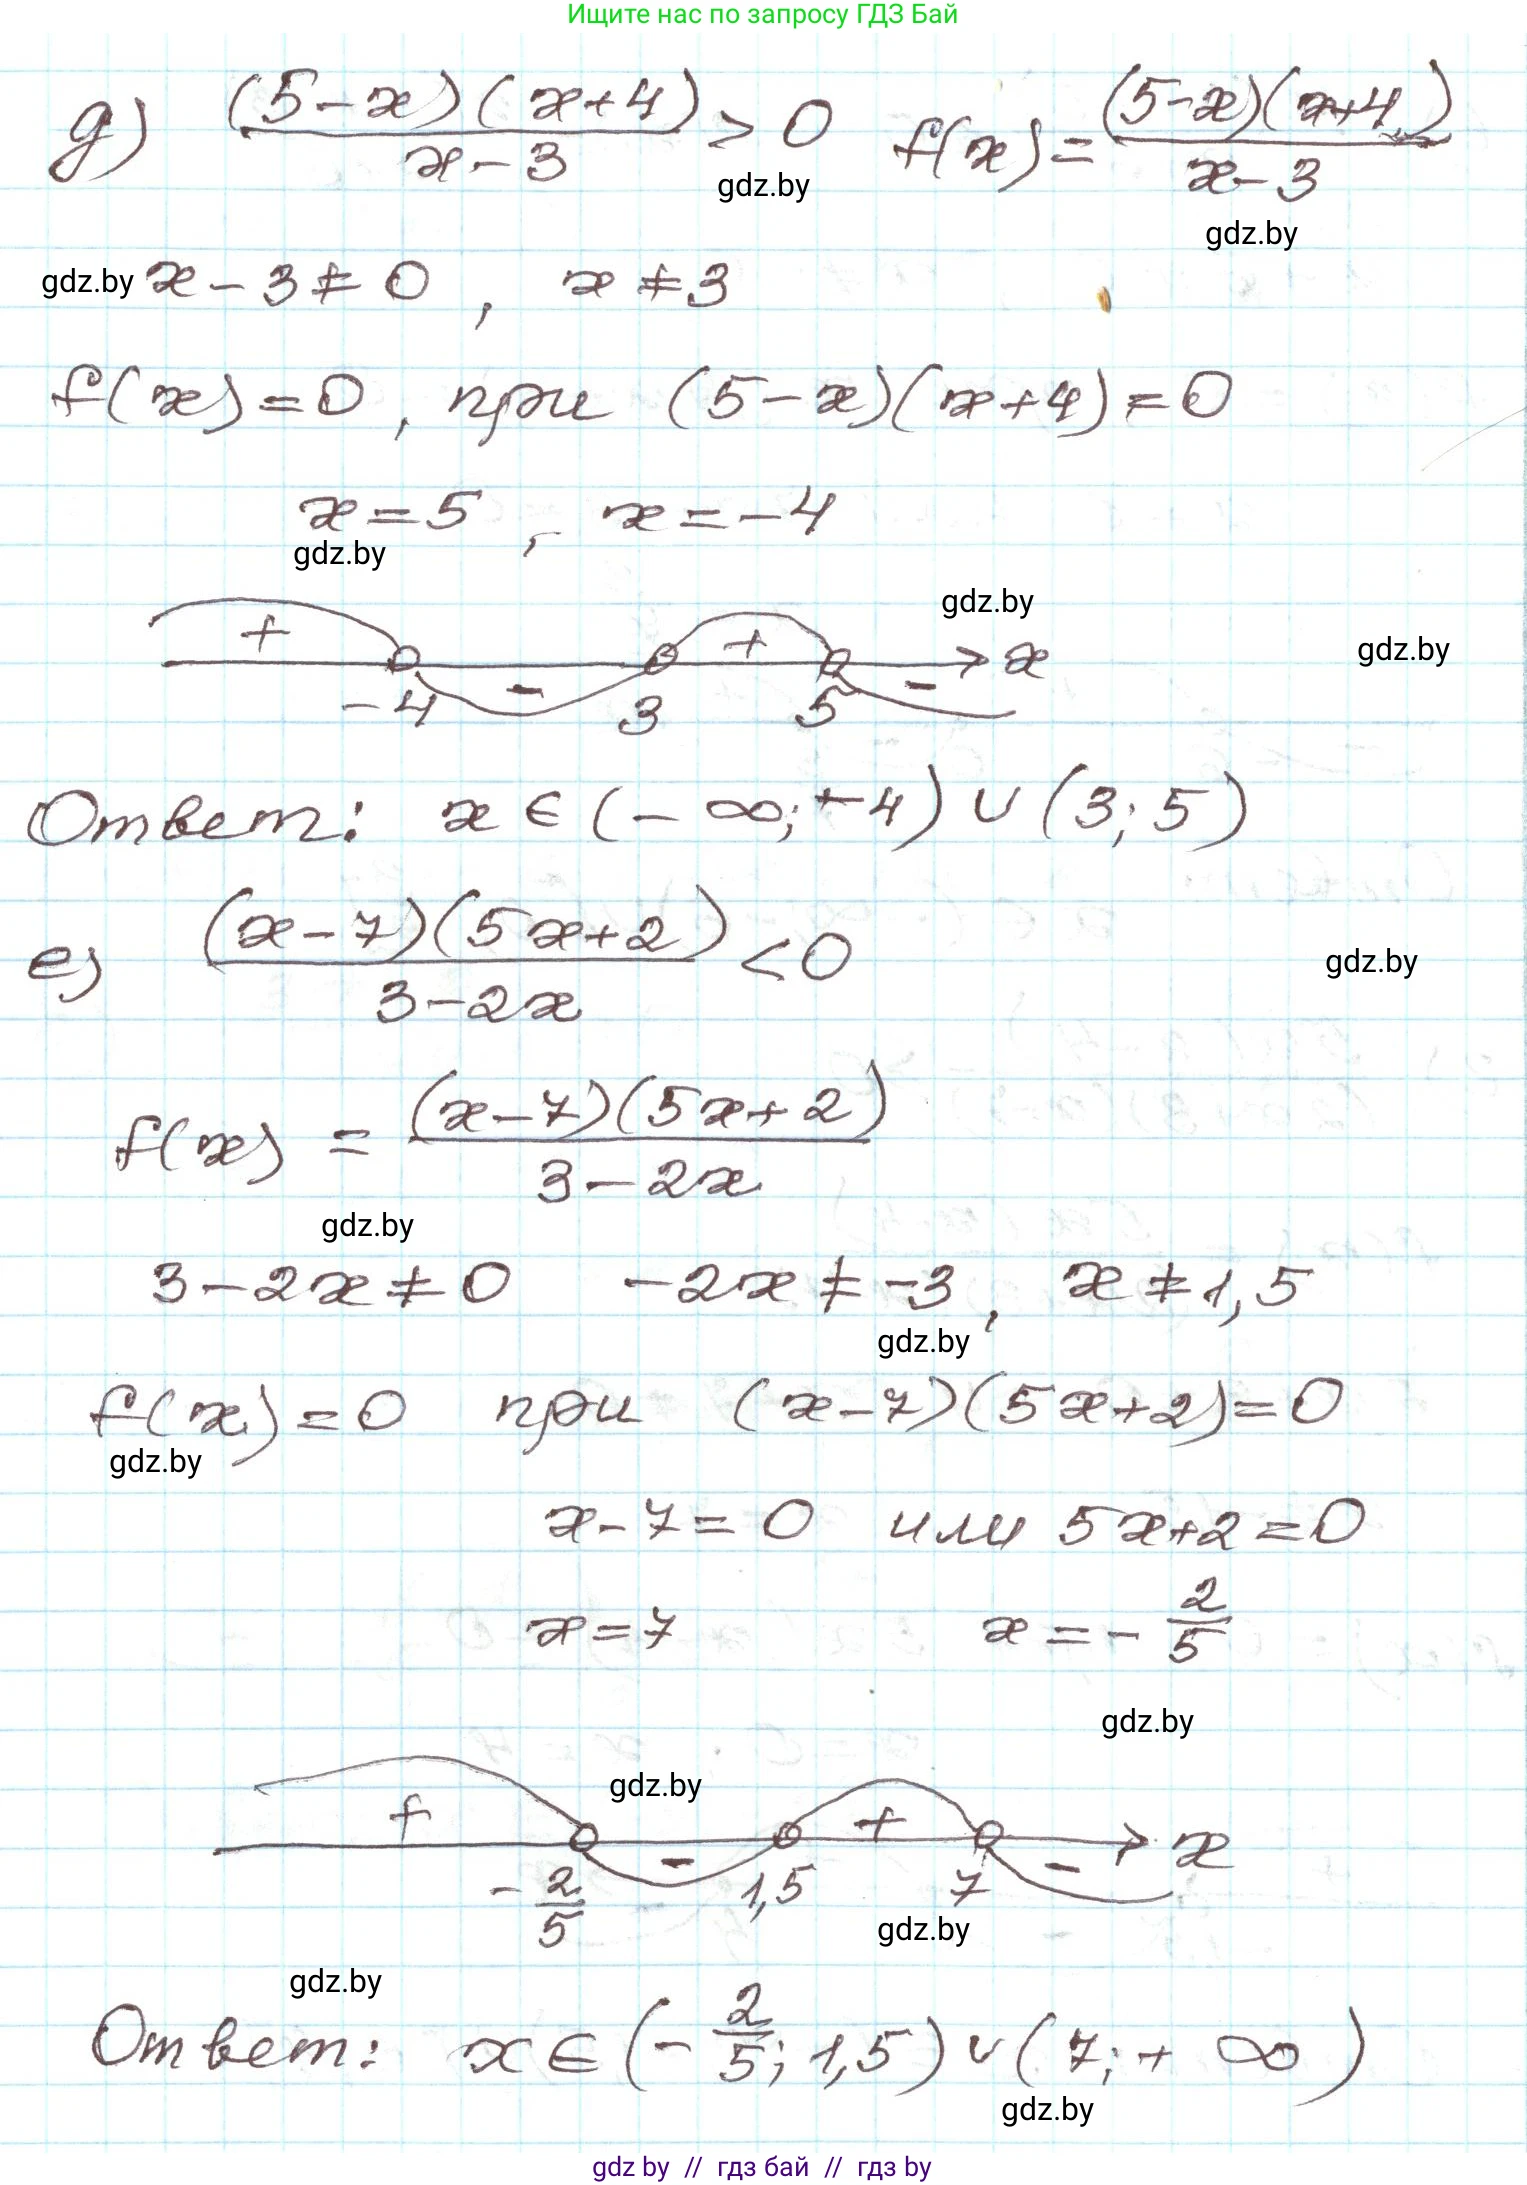 Ищите нас по запросу ГДЗ Бай
д) (5-x)(x+4)/(x-3) > 0 f(x) = (5-x)(x+4)/(x-3)
gdz.by
gdz.by
gdz.by x-3≠0, x≠3
f(x)=0, при (5-x)(x+4)=0
x=5, x=-4
gdz.by
gdz.by
gdz.by
+ - + - x
-4 3 5
Ответ: x∈(-∞;-4)∪(3;5)
е) (x-7)(5x+2)/(3-2x) <0
gdz.by
f(x) = (x-7)(5x+2)/(3-2x)
gdz.by
3-2x≠0 -2x≠-3, x≠1,5
gdz.by
f(x)=0 при (x-7)(5x+2)=0
gdz.by
x-7=0 или 5x+2=0
x=7 x=-2/5
gdz.by
gdz.by
+ - + - x
-2/5 1,5 7
gdz.by
gdz.by
Ответ: x∈(-2/5; 1,5)∪(7;+∞)
gdz.by
gdz by // гдз бай // гдз by